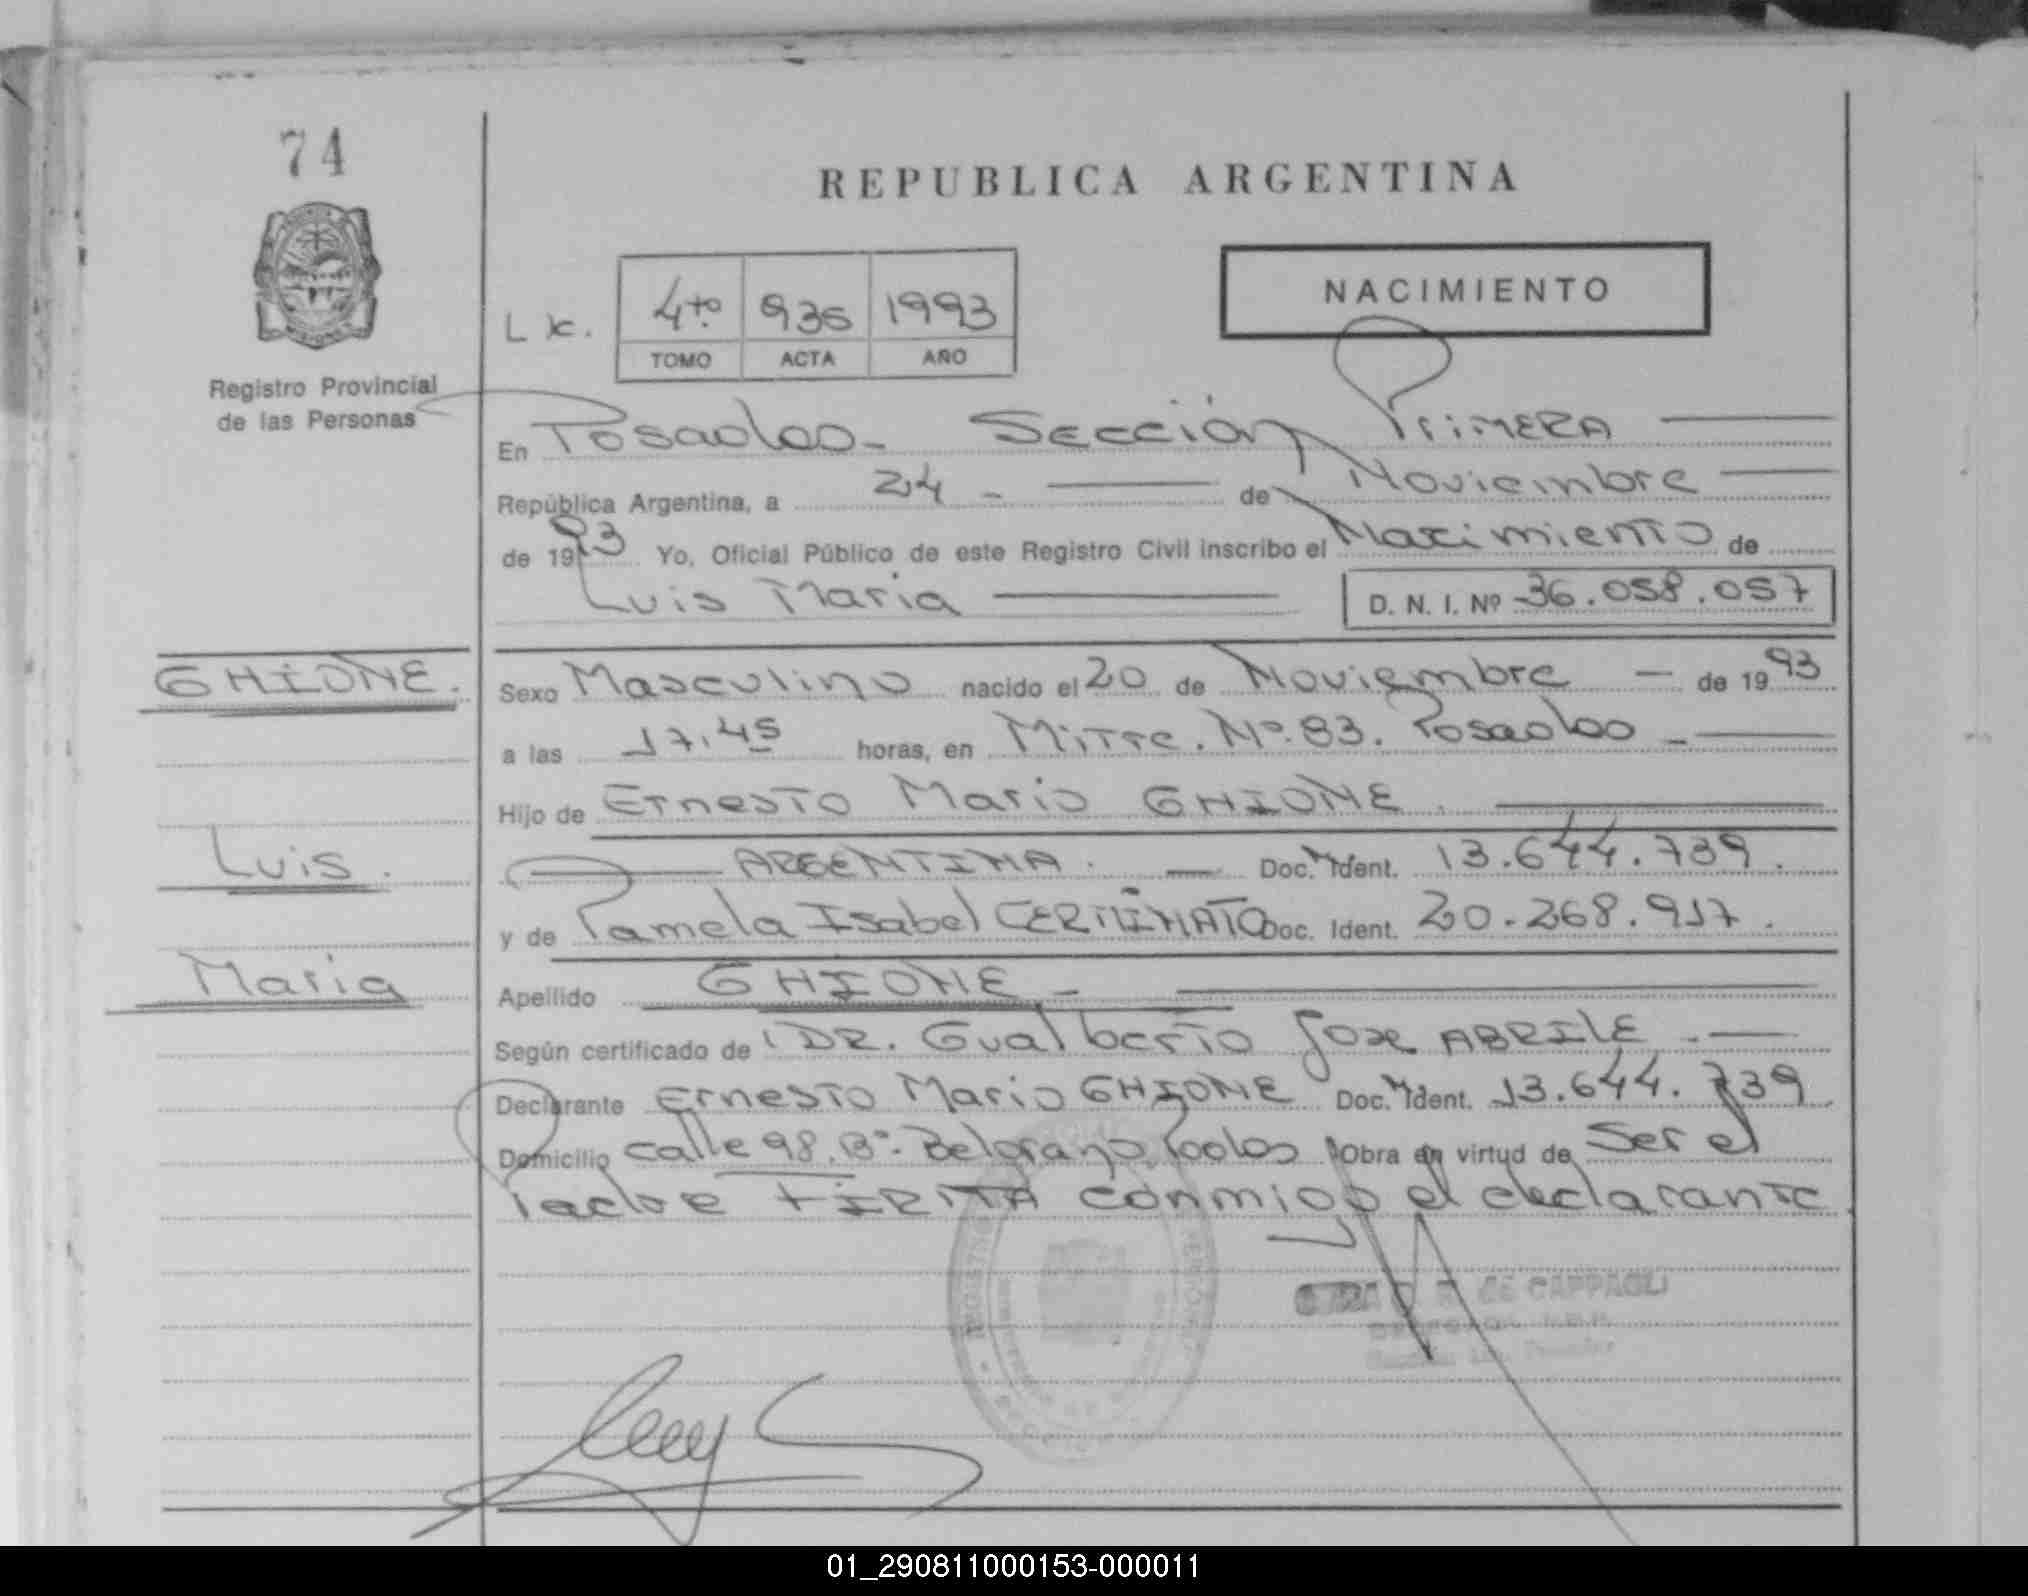 74
REPUBLICA ARGENTINA
MISIONES
Registro Provincial
de las Personas
4to. 936 1993
TOMO ACTA AÑO
NACIMIENTO
En Posadas - Sección Primera
República Argentina, a 24 - de Noviembre
de 1993 Yo, Oficial Público de este Registro Civil inscribo el Nacimiento de
Luis Maria D. N. I. Nº 36.058.057
GHIONE. Sexo Masculino nacido el 20 de Noviembre - de 1993
a las 17,45 horas, en Mitre. Nº. 83. Posadas -
Hijo de Ernesto Mario GHIONE.
Luis. ARGENTINA. - Doc. Ident. 13.644.739.
y de Pamela Isabel Doc. Ident. 20.268.917.
Maria Apellido GHIONE -
Según certificado de DR. Gualberto Jose ABRILE. -
Declarante Ernesto Mario GHIONE Doc. Ident. 13.644.739
Domicilio calle 98. Bº. Belgrano. Obra en virtud de Ser el
Padre FIRMA conmigo el declarante.
de CAPPAGLI
01_290811000153-000011